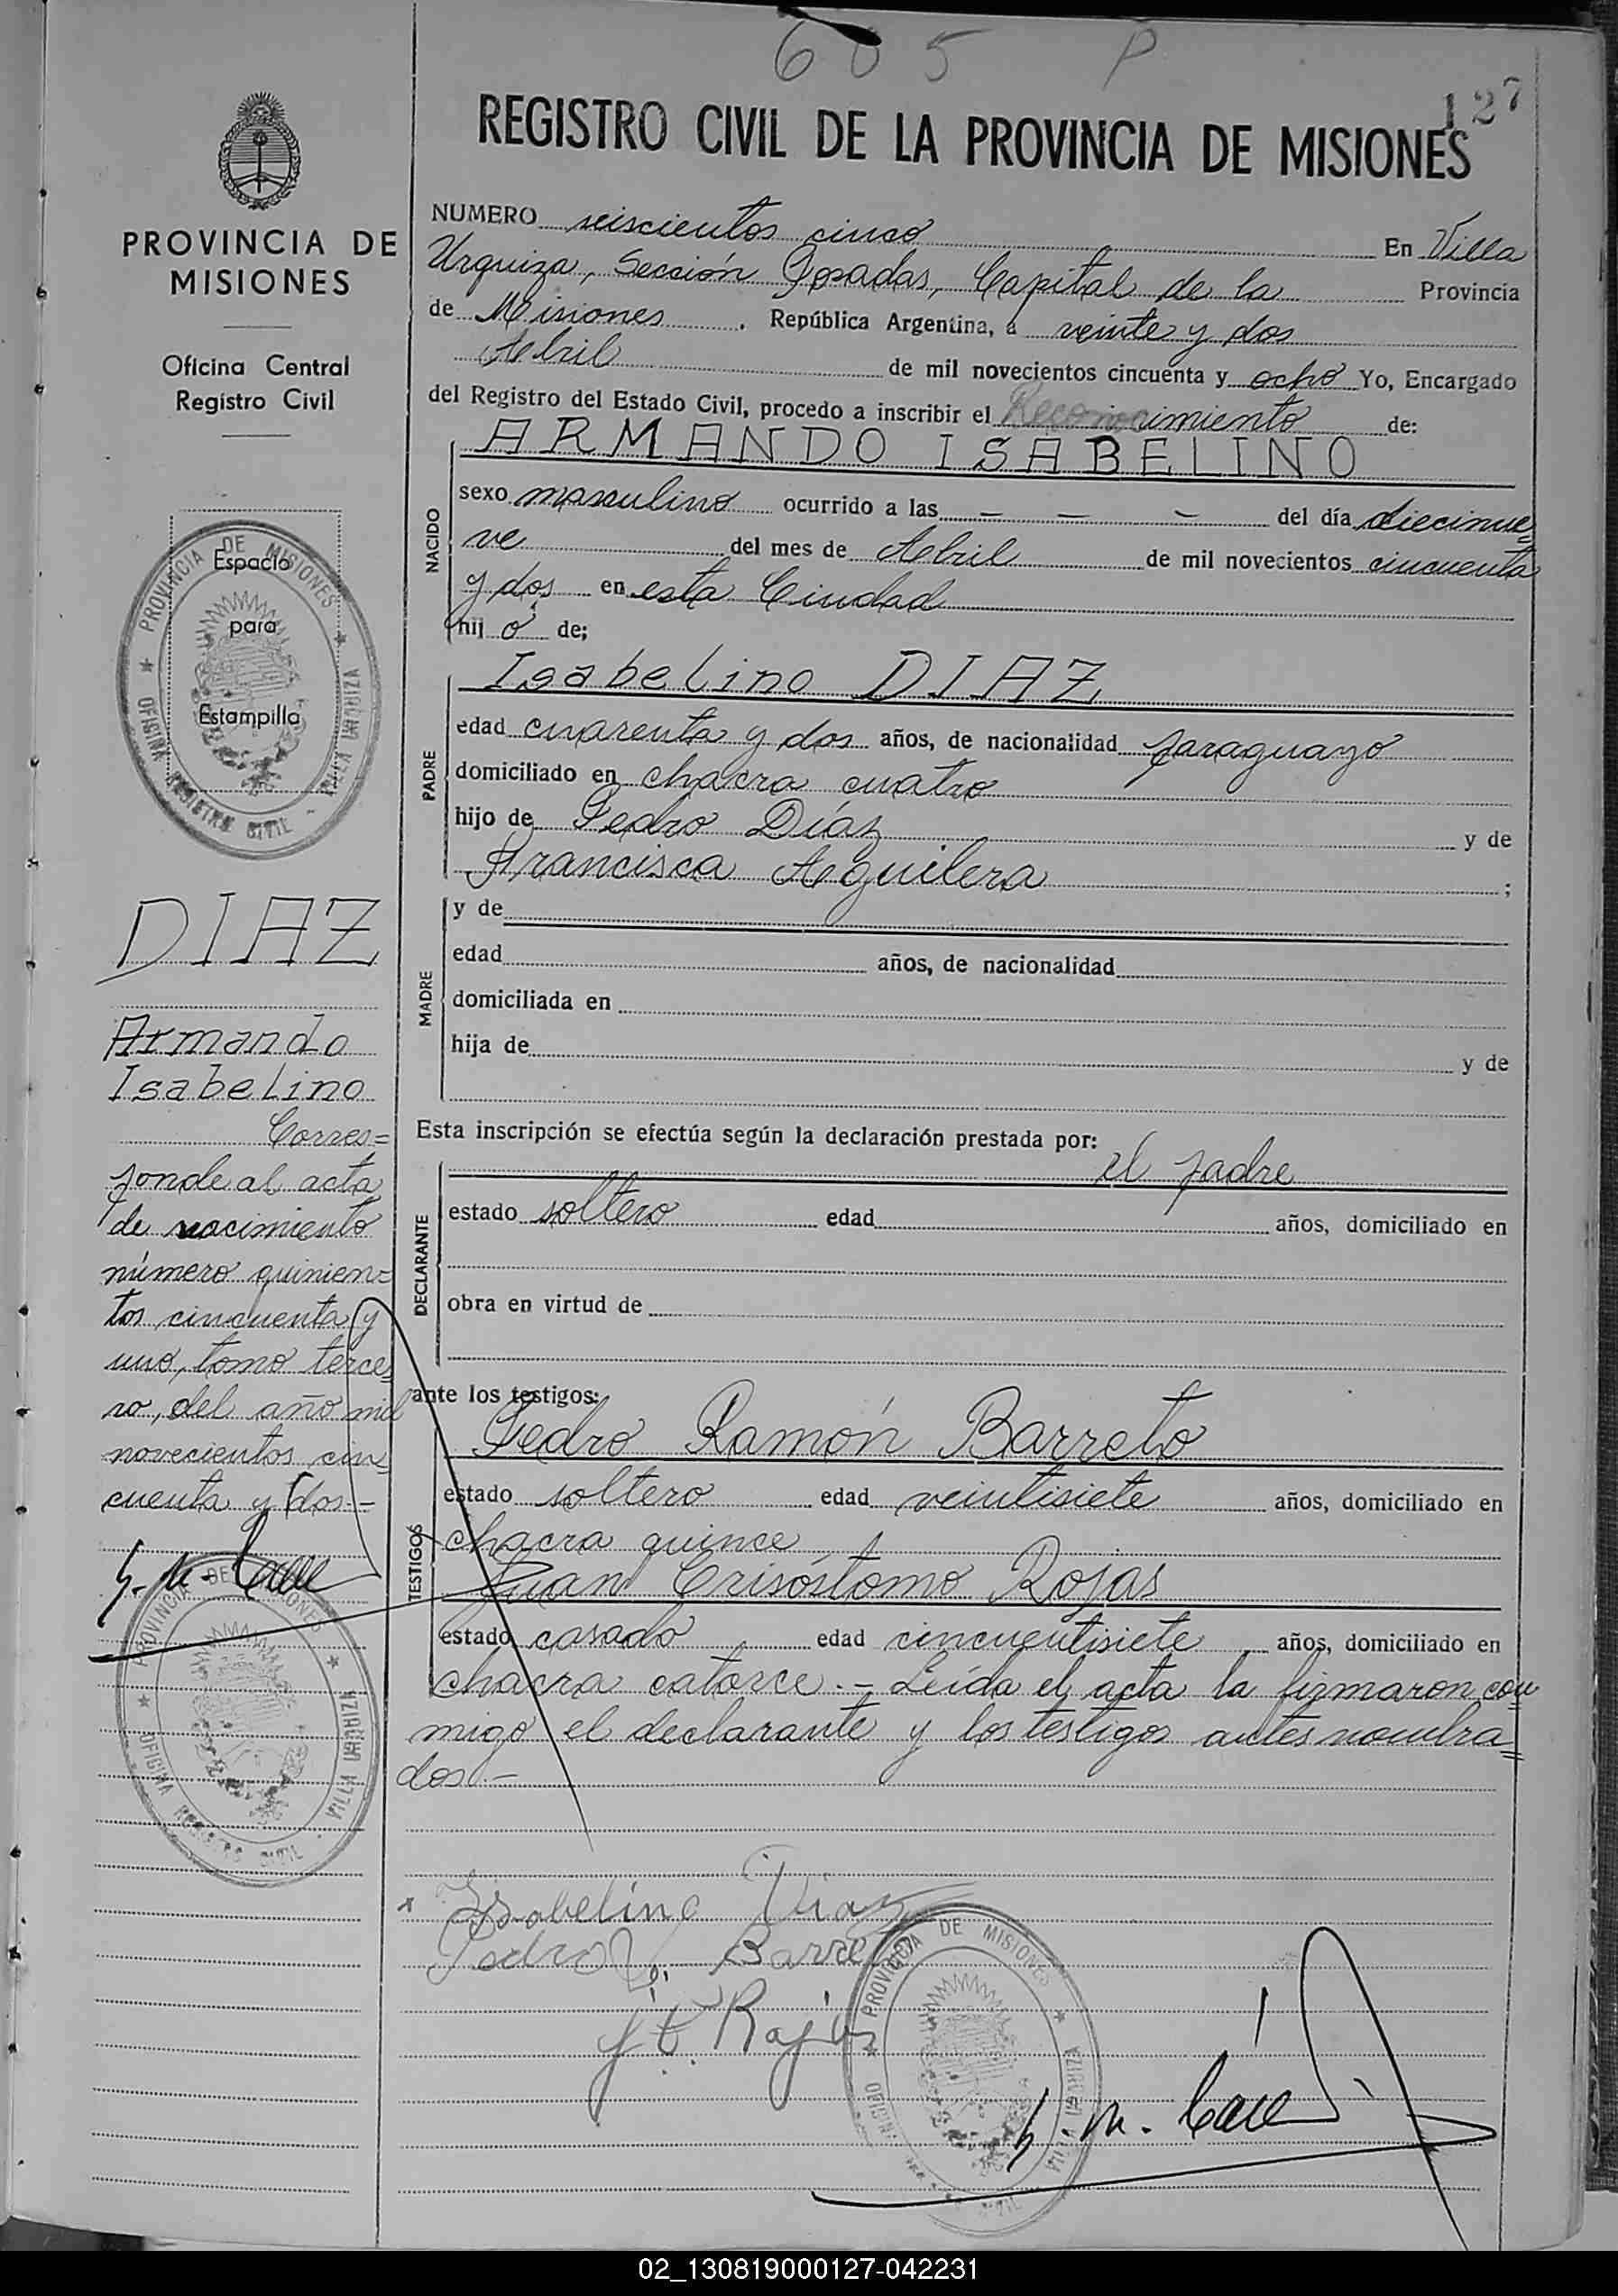 605 P
127
REGISTRO CIVIL DE LA PROVINCIA DE MISIONES
PROVINCIA DE
MISIONES
Oficina Central
Registro Civil
Espacio
para
Estampilla
PROVINCIA DE MISIONES
OFICINA REGISTRO CIVIL - VILLA URQUIZA
DIAZ
Armando
Isabelino
Corres=
ponde al acta
de nacimiento
número quinien=
tos cincuenta y
uno, tomo terce
ro, del año mil
novecientos cin=
cuenta y dos.-
PROVINCIA DE MISIONES
OFICINA REGISTRO CIVIL - VILLA URQUIZA
NUMERO seiscientos cinco En Villa
Urquiza, Sección Posadas, Capital de la Provincia
de Misiones. República Argentina, a veinte y dos
Abril de mil novecientos cincuenta y ocho Yo, Encargado
del Registro del Estado Civil, procedo a inscribir el Reconocimiento de:
NACIDO
ARMANDO ISABELINO
sexo masculino ocurrido a las — — — del día diecinue=
ve del mes de Abril de mil novecientos cincuenta
y dos en esta Ciudad
hijo de;
PADRE
Isabelino DIAZ
edad cuarenta y dos años, de nacionalidad paraguayo
domiciliado en chacra cuatro
hijo de Pedro Díaz y de
Francisca Aguilera ;
MADRE
y de
edad años, de nacionalidad
domiciliada en
hija de y de
Esta inscripción se efectúa según la declaración prestada por:
DECLARANTE
el padre
estado soltero edad años, domiciliado en
obra en virtud de
ante los testigos:
TESTIGOS
Pedro Ramón Barreto
estado soltero edad veintisiete años, domiciliado en
chacra quince
Juan Crisóstomo Rojas
estado casado edad cincuentisiete años, domiciliado en
chacra catorce.- Leída el acta la firmaron con
migo el declarante y los testigos antes nombra=
dos.-
Isabelino Diaz
Pedro R. Barreto
J. C. Rojas
PROVINCIA DE MISIONES
02_130819000127-042231